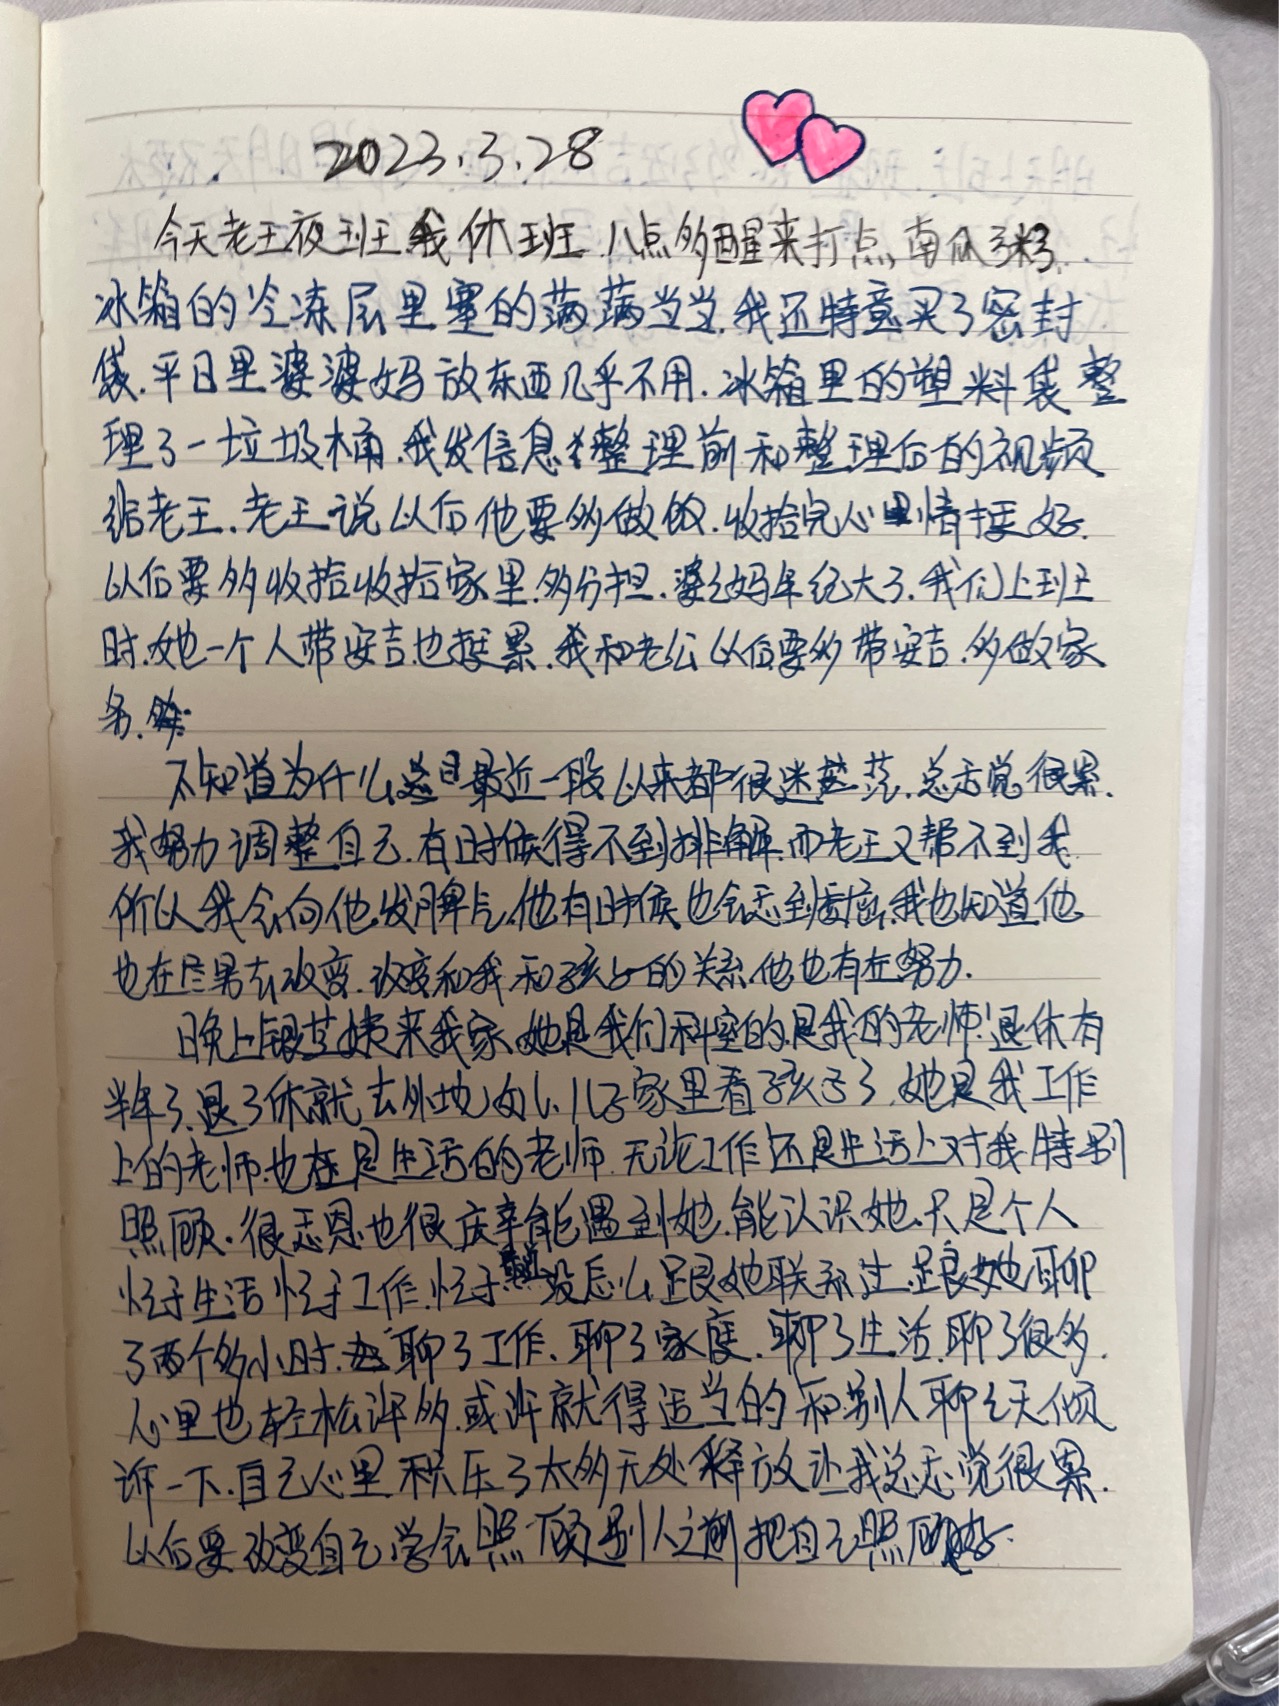 2023.3.28
今天老王夜班,我休班.八点多醒来打点南瓜粥,
冰箱的冷冻层里塞的满满当当,我还特意买了密封
袋.平日里婆婆妈放东西几乎不用.冰箱里的塑料袋整
理了一垃圾桶.我发信息整理前和整理后的视频
给老王.老王说以后他要多做做.收拾完心里情挺好.
以后要多收拾收拾家里.多分担.婆婆妈年纪大了.我们上班
时.她一个人带安吉也挺累.我和老公以后要多带安吉.多做家
务.
不知道为什么最近一段以来都很迷茫.总感觉很累.
我努力调整自己.有时候得不到排解.而老王又帮不到我
所以我会向他发脾气.他有时候也会感到委屈.我也知道他
也在尽量去改变.改变和我和孩子的关系.他也有在努力.
晚上银芝姨来我家.她是我们科室的.是我的老师.退休有
半年了.退了休就去外地的儿子家里看孩子了.她是我工作
上的老师.也是生活的老师.无论工作还是生活上对我特别
照顾.很感恩也很庆幸能遇到她.能认识她.只是个人
忙于生活忙于工作.忙于 没怎么跟她联系过.跟她聊
了两个多小时.聊了工作、聊了家庭.聊了生活.聊了很多.
心里也轻松许多.或许就得适当的和别人聊聊天倾
诉一下.自己心里积压了太多无处释放让我总感觉很累.
以后要改变自己.学会照顾别人之前把自己照顾好.